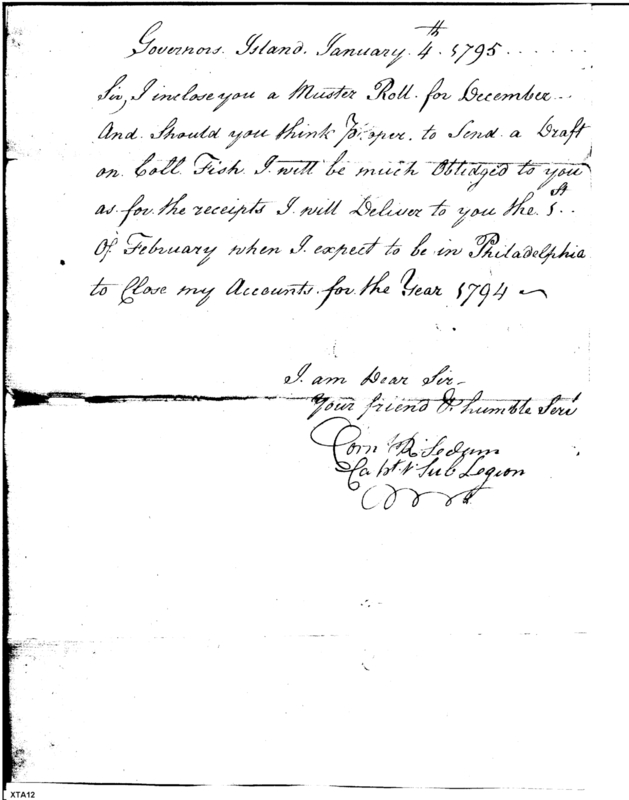 Governors Island January 4th 1795
Sir, I inclose you a Muster Roll for December
And Should you think Proper to Send a Draft
on Coll Fish I will be much Obledged to you
as for the receipts I will Deliver to you the 1st
Of February when I expect to be in Philadelphia
to Close my Accounts for the Year 1794
I am Dear Sir
Your friend & humble Servt
Corn R Sedam
Capt 1 Sub Legion
XTA12